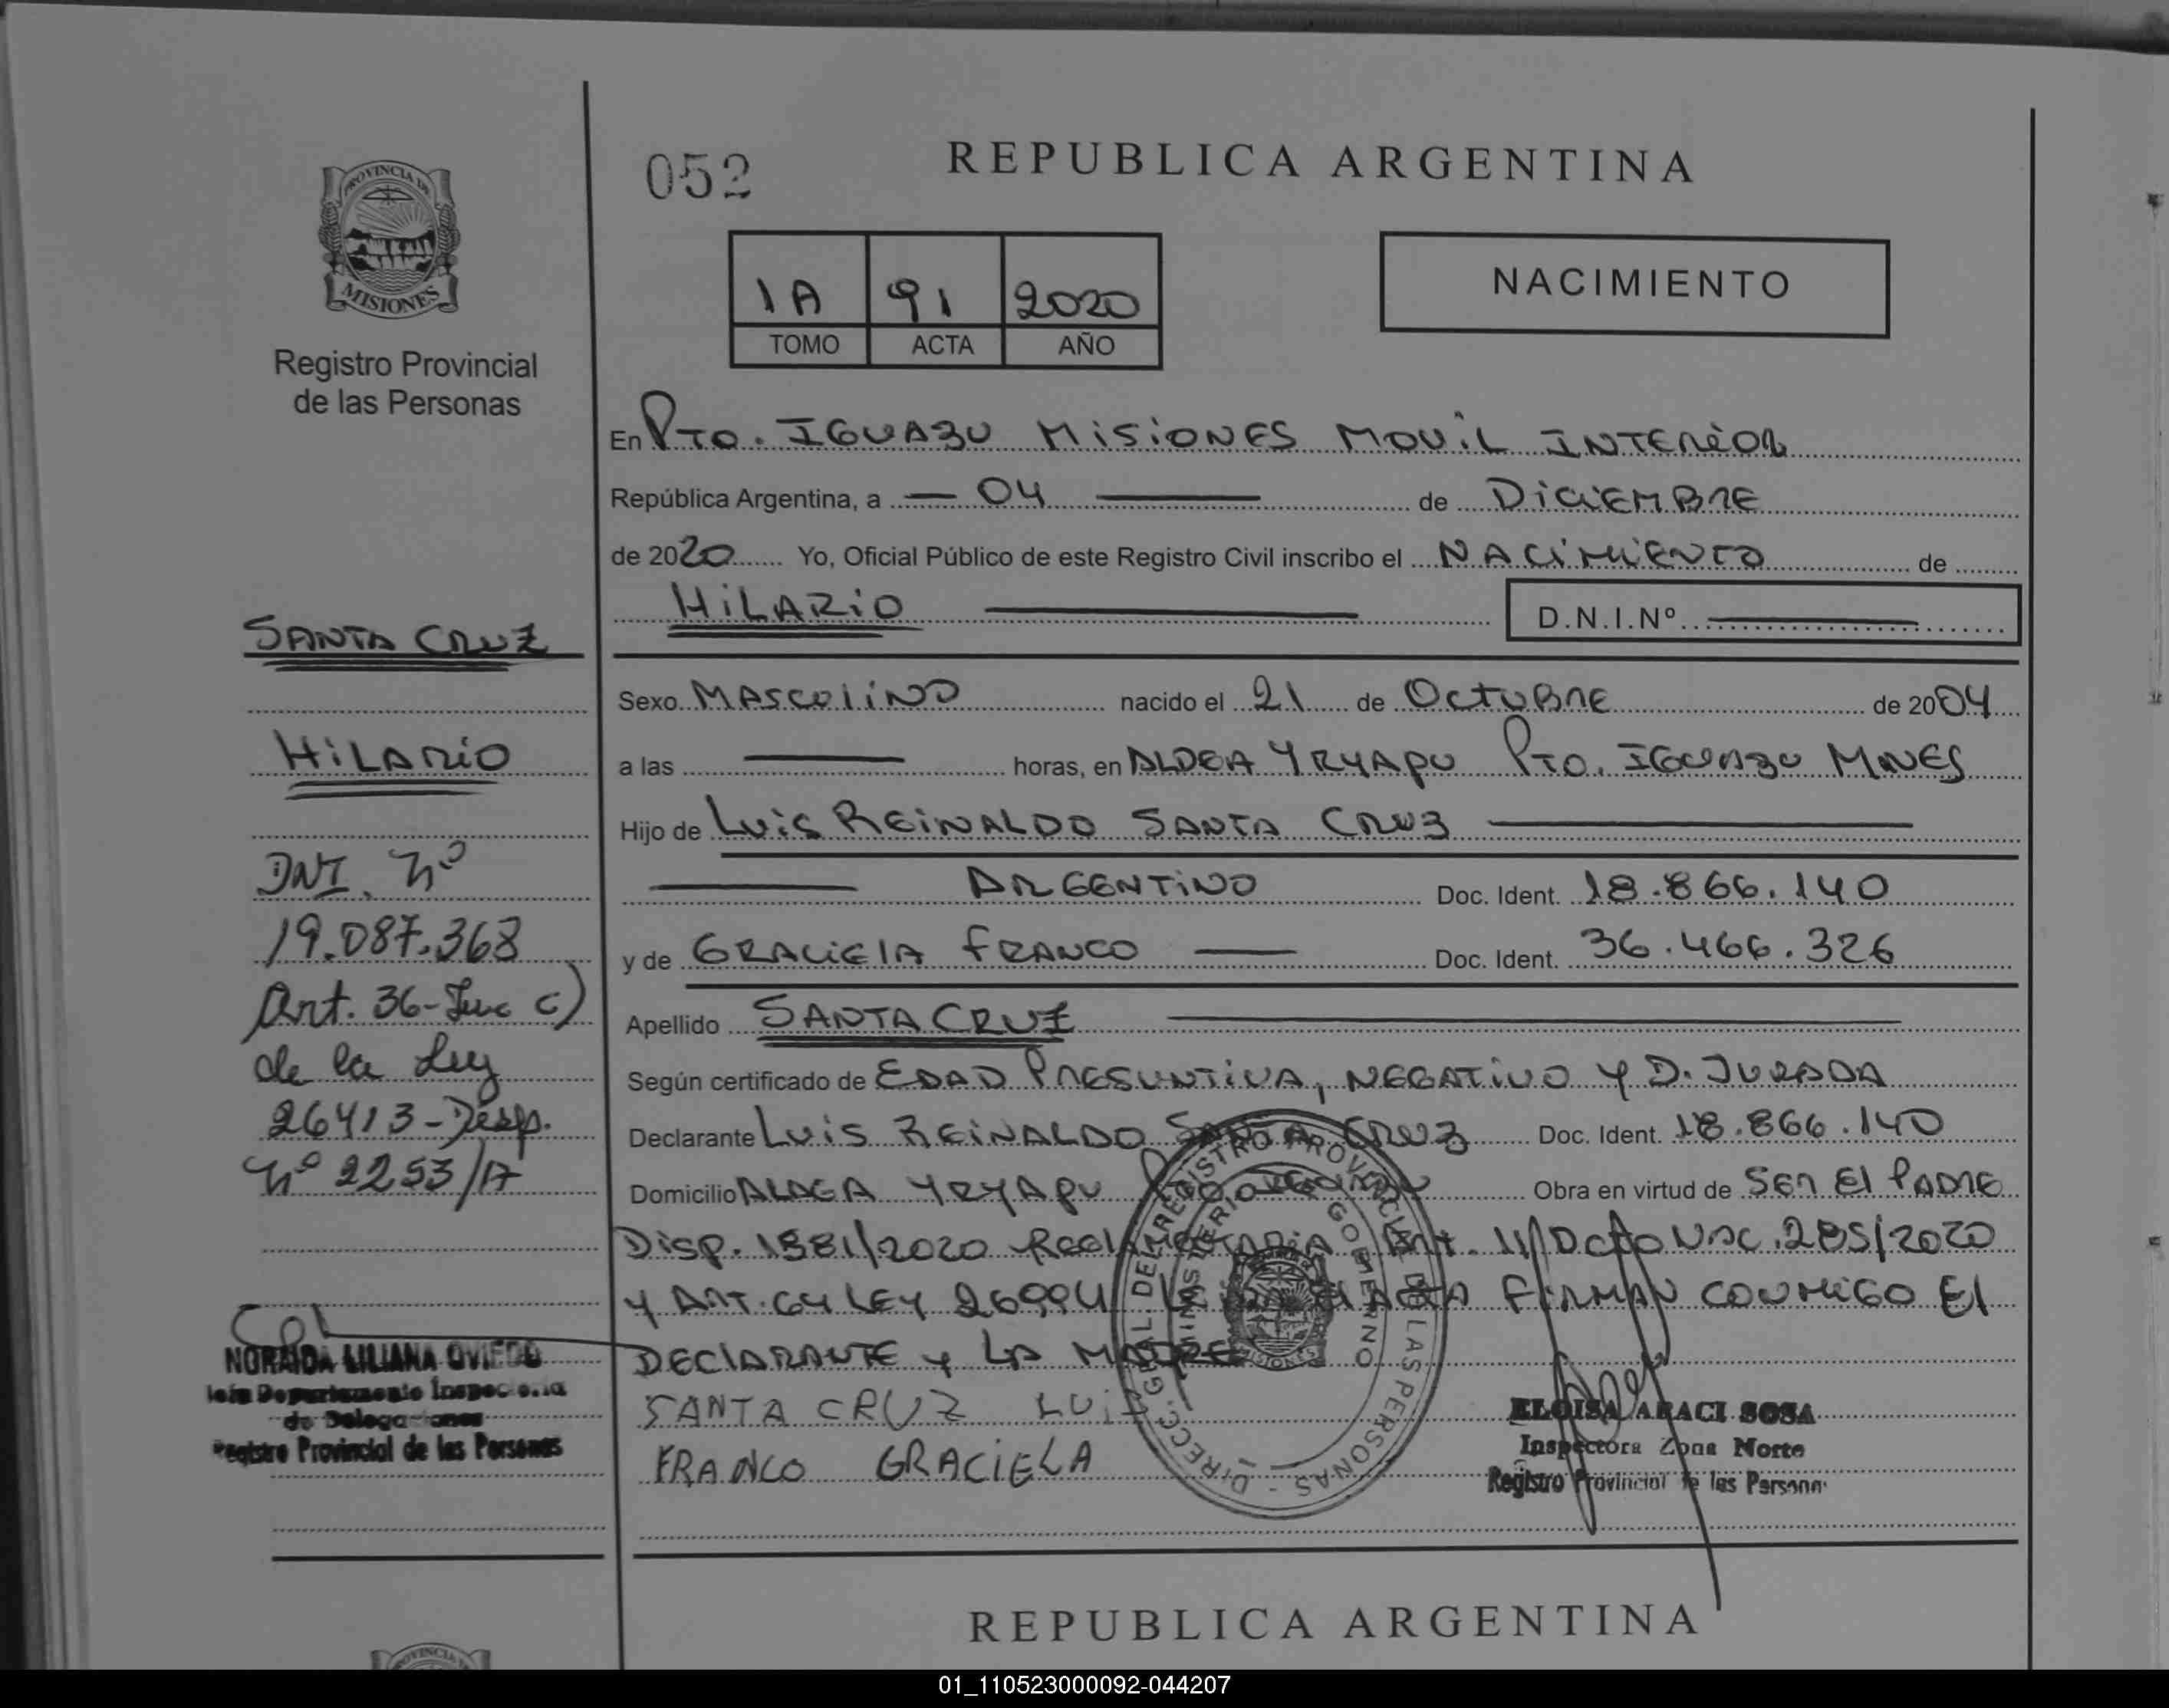 PROVINCIA DE
MISIONES
Registro Provincial
de las Personas
SANTA CRUZ
HiLARiO
DNI. Nº
19.087.368
Art. 36-Inc c)
de la Ley
26413-Disp.
Nº 2253/17
NORAIDA LILIANA OVIEDO
Departamento Inspec
de Delegaciones
Registro Provincial de las Personas
052
REPUBLICA ARGENTINA
1A 91 2020
TOMO ACTA AÑO
NACIMIENTO
En PTO. IGUAZU MiSiONES MOViL INTERiOR
República Argentina, a — 04 — de DiCiEMBRE
de 2020 Yo, Oficial Público de este Registro Civil inscribo el NACiMiENTO de
HiLARiO — D.N.I.Nº —
Sexo MASCULiNO nacido el 21 de OCTUBRE de 2004
a las — horas, en ALDEA YRYAPU PTO. IGUAZU MNES
Hijo de LUiS REiNALDO SANTA CRUZ —
— ARGENTiNO Doc. Ident. 18.866.140
y de GRACiElA FRANCO — Doc. Ident. 36.466.326
Apellido SANTA CRUZ —
Según certificado de EDAD PRESUNTiVA, NEGATiVO Y D. JURADA
Declarante LUiS REiNALDO SANTA CRUZ Doc. Ident. 18.866.140
Domicilio YRYAPU Obra en virtud de SER El PADRE
DiSP. 1381/2020 Art. 11/ DCTO 285/2020
Y ART. 64 LEY 26994 ACTA FiRMAN CONMiGO El
DEClARANTE Y LA MADRE
SANTA CRUZ LUiS
FRANCO GRACiELA
DIRECC. GRAL DEL REGISTRO PROVINCIAL DE LAS PERSONAS -
MINISTERIO DE GOBIERNO
MISIONES
ELOISA ARACI SOSA
Inspectora Zona Norte
Registro Provincial de las Personas
REPUBLICA ARGENTINA
01_110523000092-044207